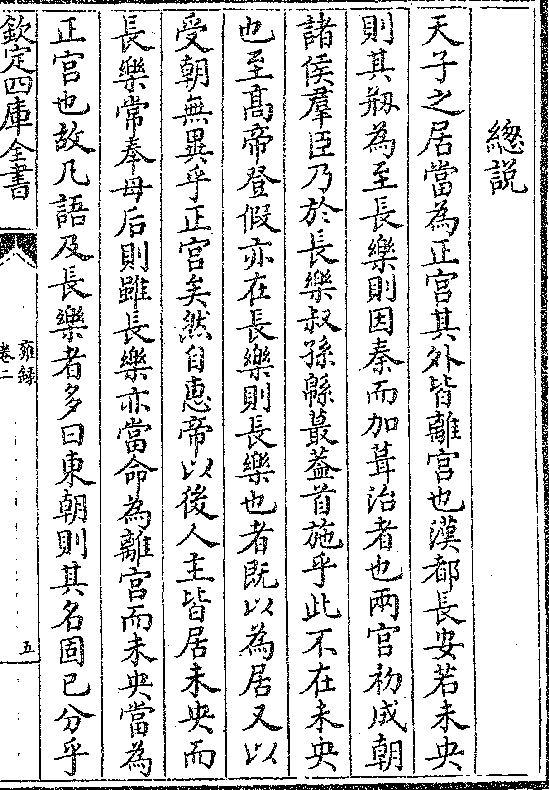 總説
天子之居當為正宫其外皆離宫也漢都長安若未央
則其剏為至長樂則因秦而加葺治者也兩宫初成朝
諸侯羣臣乃於長樂叔孫緜蕞葢首施乎此不在未央
也至髙帝登假亦在長樂則長樂也者既以為居又以
受朝無異乎正宫矣然自惠帝以後人主皆居未央而
長樂常奉母后則雖長樂亦當命為離宫而未央當為
正宫也故凡語及長樂者多曰東朝則其名固已分乎
欽定四庫全書
雍録
卷二
五